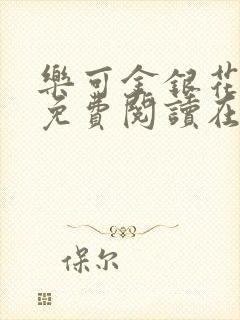 樂可金銀花
免費閱讀在
保尔